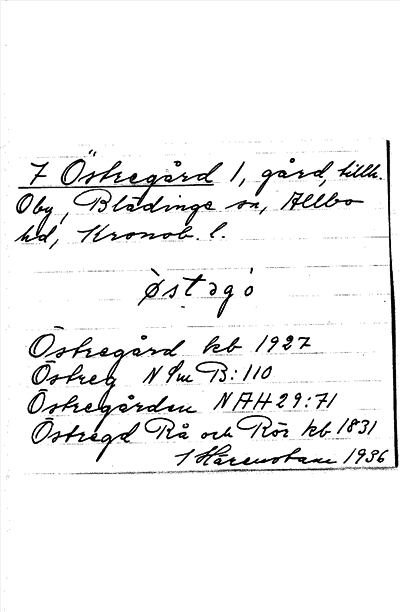 7 Östregård 1, gård, tillh.
Oby, Blädinge sn, Allbo
hd, Kronob. l.
østagó
Östregård kb 1927
Östreg N Sm B: 110
Östregården NAH 29:71
Östregd Rå och Rör kb 1831
1936